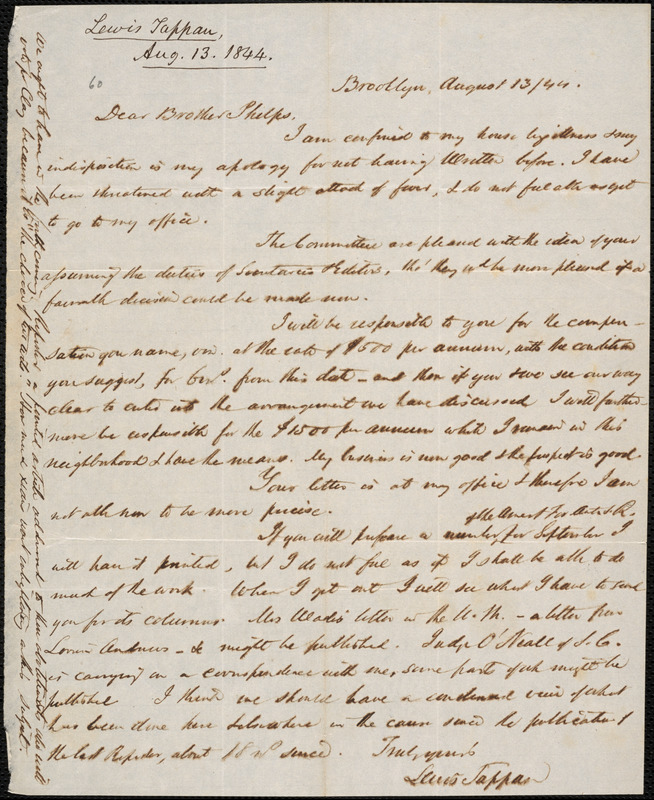 Lewis Tappan,
Aug. 13. 1844.
60
Brooklyn, August 13/44.
Dear Brother Phelps,
I am confined to my house by illness & my
indisposition is my apology for not having written before. I have
been threatened with a slight attack of fever, & do not feel able as yet
to go to my office.
The Committee are pleased with the idea of your
assuming the duties of Secretaries & Editors, tho' they wd be more pleased if a
favorable decision could be made now.
I will be responsible to you for the compen-
sation you name, viz. at the rate of $600 per annum, with the condition
you suggest, for 6 ms. from this date - and then if you & we see our way
clear to enter into the arrangement we have discussed I will further-
more be responsible for the $1500 per annum while I remain in this
neighborhood & have the means. My business is now good & the prospect is good.
Your letter is at my office & therefore I am
not able now to be more precise.
of the Amer. & For. Anti-S. R.
If you will prepare a number for September I
will have it printed, but I do not feel as if I shall be able to do
much of the work. When I get out I will see what I have to send
you for its columns. letter in the U. M. - a letter from
Lorin Andrews - & might be published. Judge O'Neall of S. C.
is carrying on a correspondence with me, some parts of wh might be
published. I think we should have a condensed view of what
has been done here & elsewhere in the cause since the publication of
the last Reporter, about 18 ms since. Truly yours
Lewis Tappan
We ought to have in the forthcoming Reporter a pointed article addressed to those abolitionists who will
vote for Clay because it is the choice of two evils. You and I can want everything in this respect.